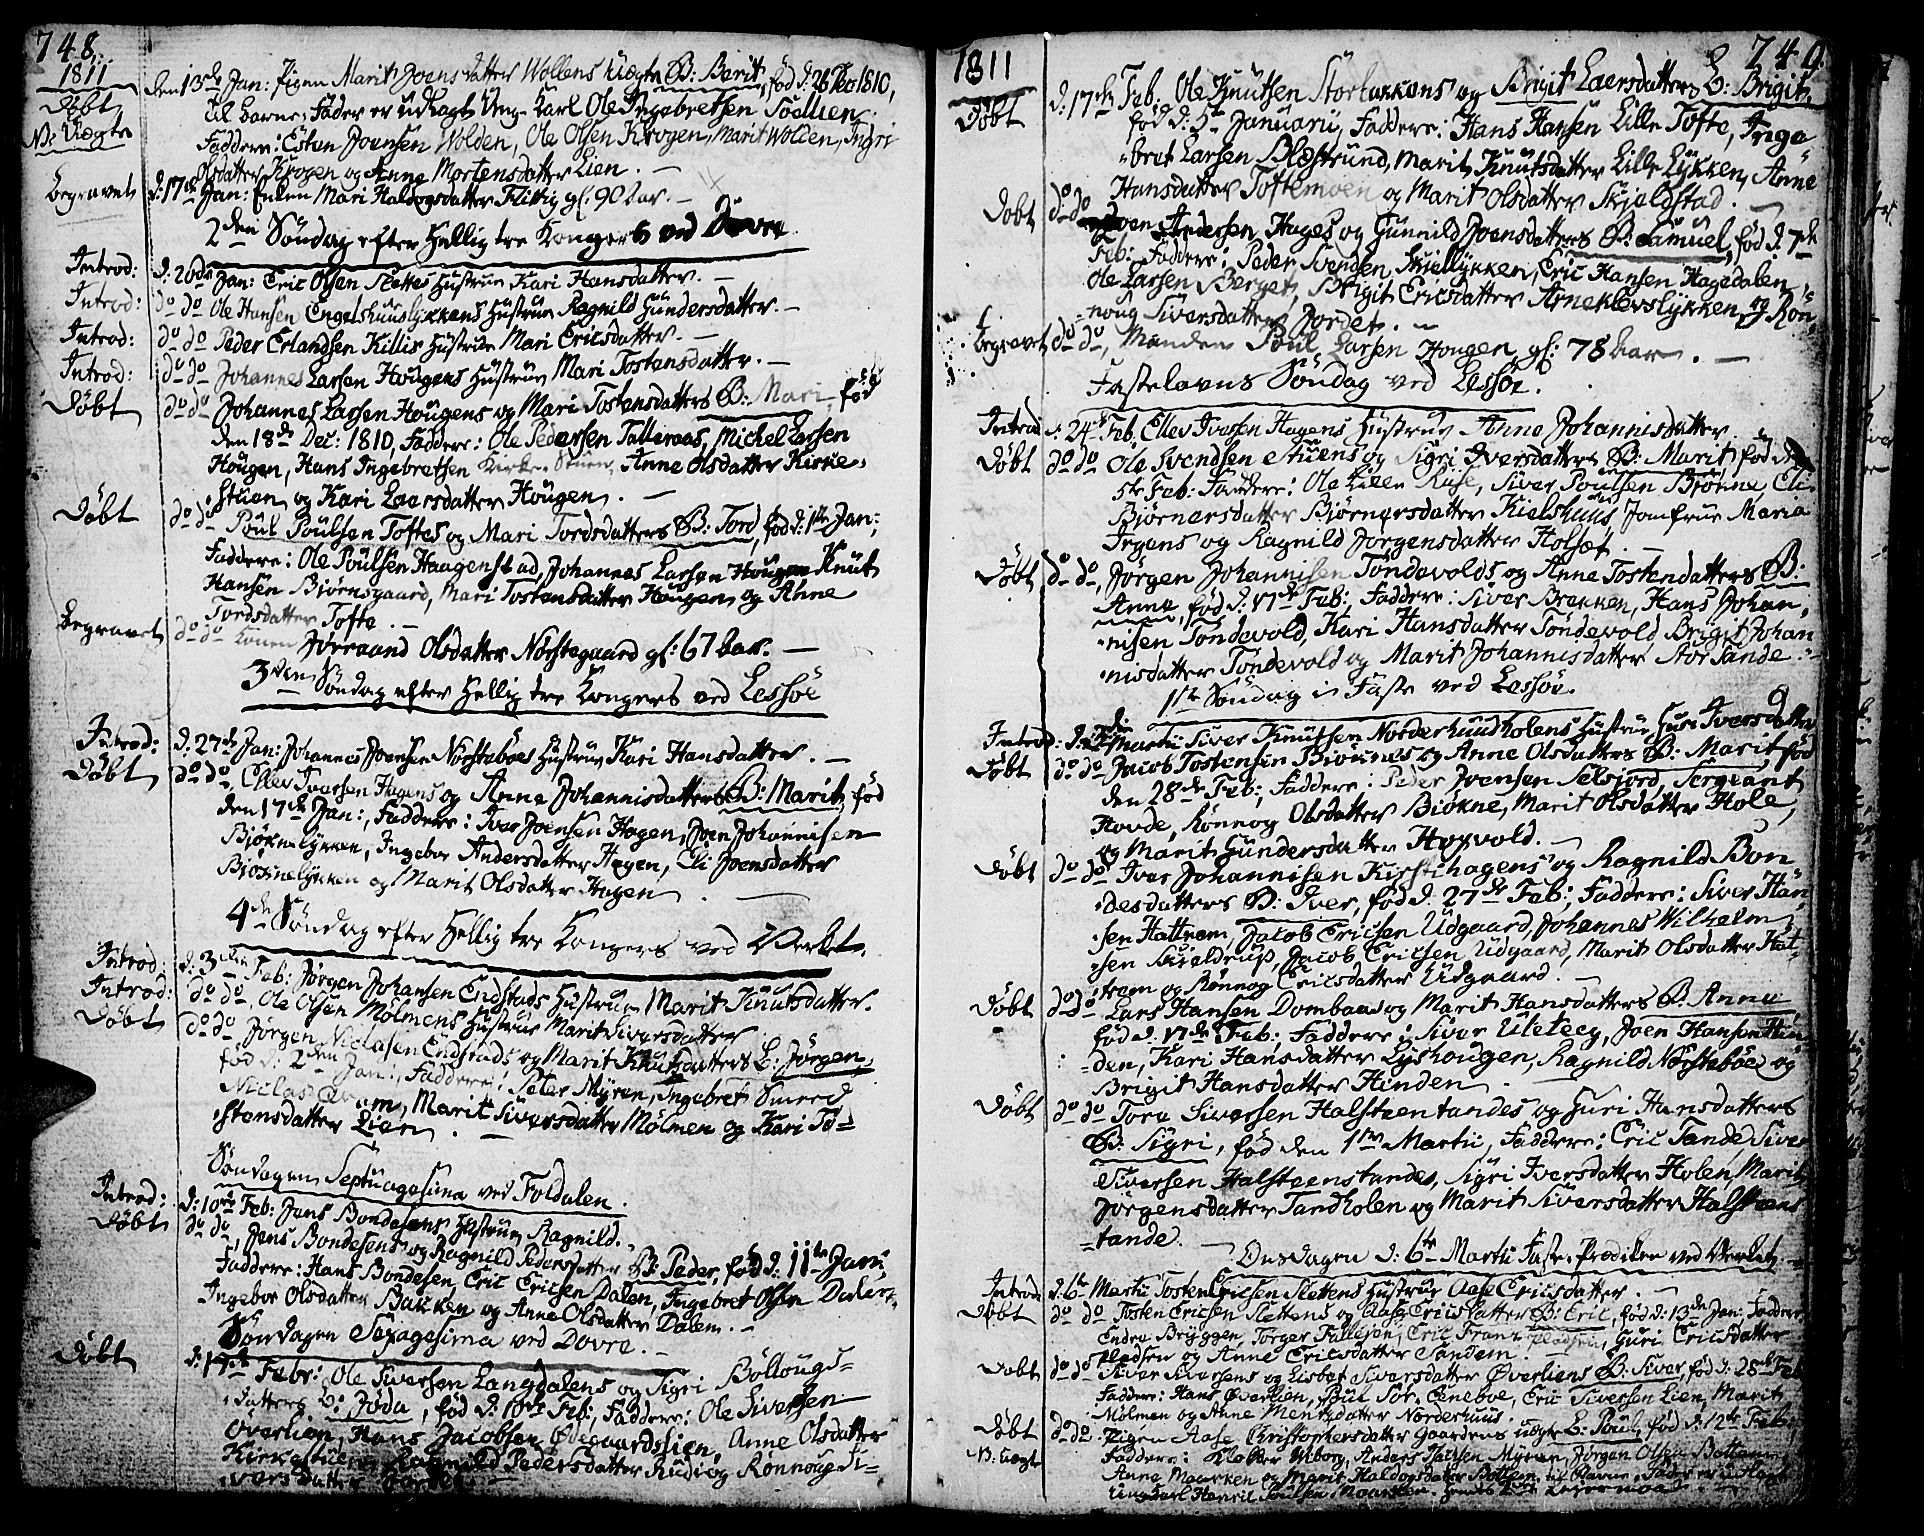 748.
1811
Døbt
N: Uægte
den 13de Jan: Pigen Marit Joensdatter Wollens Uægte B: Berit, fød d: 26 Dec 1810,
til Barne-Fader er udlagt Ung-Karl Ole Ingebretsen Tødlien.
Faddere: Esten Joensen Wolden, Ole Olsen Krogen, Marit Wolden, Ingri
Olsdatter Krogen og Anne Mortensdatter Lien. —
Begravet d: 17de Jan: Enken Mari Haldogsdatter Flittig gl: 90 Aar. —
2den Søndag efter Hellig tre Kongers ved Dovre.
Introd: d: 20de Jan: Eric Olsen Slettes Hustrue Kari Hansdatter. —
Introd: do do Ole Hansen Engelshuuslykkens Hustrue Ragnild Gundersdatter. —
Introd: do do Peder Erlandsen Killis Hustrue Mari Ericsdatter. —
Introd: do do Johannes Larsen Hougens Hustrue Mari Tostensdatter. —
Døbt do do Johannes Larsen Hougens og Mari Tostensdatters B: Mari, fød
den 18de Dec: 1810, Faddere: Ole Pedersen Talleraas, Michel Larsen
Hougen, Hans Ingebretsen Kirke-Stuen, Anne Olsdatter Kirke-
stuen og Kari Laersdatter Hougen. —
Døbt do do Poul Poulsen Toftes og Mari Tordsdatters B: Tord, fød d: 1ste Jan:,
Faddere: Ole Poulsen Haagenstad, Johannes Larsen Hougen Knut
Hansen Bjørnsgaard, Mari Tostensdatter Hougen, og Anne
Tordsdatter Tofte. —
Begravet do do Konen Jørrand Olsdatter Norstegaard gl: 67 Aar. —
3die Søndag efter Hellig tre Kongers ved Lessøe
Introd: d: 27de Jan: Johannes Joensen Norstebøes Hustrue Kari Hansdatter. —
Døbt do do, Ellev Iversen Hagens og Anne Johannisdatters B: Marit, fød
den 17de Jan:, Faddere: Iver Joensen Hagen, Joen Johannisen
Bjøknelykken, Ingebor Andersdatter Hagen, Eli Joensdatter
Bjøknelykken og Marit Olsdatter Hagen.
4de Søndag efter Hellig tre Kongers ved Verket.
Introd: d: 3die Feb: Jørgen Johansen Endstads Hustrue Marit Knutsdatter.
Introd: do do, Ole Olsen Mølmens Hustrue Marit Siversdatter
Døbt do do, Jørgen Niclasen Endstads og Marit Knutsdatters B: Jørgen,
fød d: 2den Jan:, Faddere: Peter Myren, Ingebret Smed
Niclas, Marit Siversdatter Mølmen og Kari To-
stensdatter Lien. —
Søndagen Septuagesima ved Foldalen.
Introd: d: 10de Feb: Jens Bondesens Hustrue Ragnild.
Døbt do do, Jens Bondesens og Ragnild Pedersdatter B: Peder, fød d: 11te Jan:,
Faddere: Hans Bondesen, Eric Ericsen Dalen, Ingebret Olsen Dalen,
Ingebor Olsdatter Bakken og Anne Olsdatter Dalen. —
Søndagen Sexagesima ved Dovre. —
Døbt d: 17de Febr: Ole Siversen Langdalens og Sigri Bottougs-
datters B: Joda, fød d: 10de Feb:, Faddere: Ole Siversen
Øverlien, Hans Jacobsen Ødegaardslien, Anne Olsdatter
Kirkestuen, Ragnild Pedersdatter Rudi og Rønnoug Si-
versdatter Jordet.
1811
749
Døbt d: 17de Feb. Ole Knutsen Storlukkens og Brigit Laersdatters B: Brigit,
fød d: Januarii, Faddere: Hans Hansen Lille Tofte, Inge-
bret Larsen Blæstrund, Marit Knutsdatter Lille Lykken, Anne
Hansdatter Toftemoen og Marit Olsdatter Skjelstad. —
Døbt do do Joen Andersen Hages og Gunnild Joensdatters B: Samuel, fød d: 7de
Feb: Faddere: Peder Svendsen Skiellykken, Eric Hansen Hagedalen,
Ole Larsen Berget, Brigit Ericsdatter Arneklevslykken, og Røn-
noug Siversdatter Jordet. —
Begravet do do, Manden Poul Larsen Hougen gl: 78 Aar. —
Fastelavns Søndag ved Lessøe.
Introd d: 24de Feb. Ellev Iversen Hagens Hustrue Anne Johannisdatter
Døbt do do Ole Svendsen Stuens og Sigri Iversdatters B: Marit, fød d:
5te Feb: Faddere: Ole Lilleruse, Siver Poulsen Bjøkne, Eli
Bjørnersdatter Bjørnersdatter Kielshuus, Jomfrue Maria
Irgens og Ragnild Jørgensdatter Holset. —
Døbt do do, Jørgen Johannisen Tøndevolds og Anne Tostensdatters B:
Anne, fød d: 17de Feb:, Faddere: Siver Brekken, Hans Johan-
nisen Tøndevold, Kari Hansdatter Tøndevold, Brigit Johan-
nisdatter Tøndevold og Marit Johannisdatter Stor Sande. —
1ste Søndag i Faste ved Lessøe.
Introd: d: Martii Siver Knutsen Norderhuusholens Hustrue Guri Iversdatter
Døbt do do Jacob Tostensen Bjøknes og Anne Olsdatters B: Marit, fød
den 28de Feb:, Faddere: Peder Joensen Selsjord, Sergeant
Hovde, Rønnog Olsdatter Bjøkne, Marit Olsdatter Hole,
og Marit Gundersdatter Høgvold. —
Døbt do do Iver Johannisen Kirstihagens og Ragnild Bon-
desdatters B: Iver, fød d. 27de Feb:, Faddere: Siver Han-
sen Hattrem, Jacob Ericsen Udgaard, Johannes Wilhelm-
sen Skieldrup, Jacob Ericsen Udgaard, Marit Olsdatter Hat-
trem og Rønnog Ericsdatter Udgaard. —
Døbt do do Lars Hansen Dombaas og Marit Hansdatters B. Anne
fød d. 17de Feb:, Faddere: Siver Uleleeg, Joen Hansen Hin-
den, Kari Hansdatter Lyshougen, Ragnild Norstebøe og
Brigit Hansdatter Hinden.
Døbt do do Tore Siversen Halsteentandes og Guri Hansdatters
B: Sigri, fød den 1ste Martii, Faddere: Eric Tande, Siver
Siversen Halsteenstandes, Sigri Iversdatter Holen, Marit
Jørgensdatter Tandholen og Marit Siversdatter Halsteens-
tande. —
Onsdagen d: 6te Martii Faste-Prædiken ved Verket. —
Introd d: 6te Martii Tosten Ericsen Slettens Hustrue Aase Ericsdatter. —
Døbt do do Tosten Ericsen Slettens og Aase Ericsdatter B: Eric, fød d: 13de Jan: Faddere:
Endre Bryggen, Torger Tallesen, Eric Franz Pladsen, Guri Ericsdatter
Pladsen og Anne Ericsdatter Sandem. —
Døbt do do Siver Siversens og Lisbet Siversdatter Øverliens B: Siver, fød d: 28de Feb
Faddere: Hans Øverlien, Poul Tor. Eneboe, Eric Siversen Lien, Marit
Mølmen og Anne Mentzdatter Norderhuus.
Døbt do do Pigen Aase Kristophersdatter Gaardens uægte B: Poul, fød d: 12te Feb:
N. Uægt Faddere: Klokker Wiborg, Anders Jacobsen Myren, Jørgen Olsen Bottem,
Anne Maarken og Marit Haldogsdatter Bottem, til Barne-Fader er udlagt
Ungkarl Henric Poulsen Maarken.